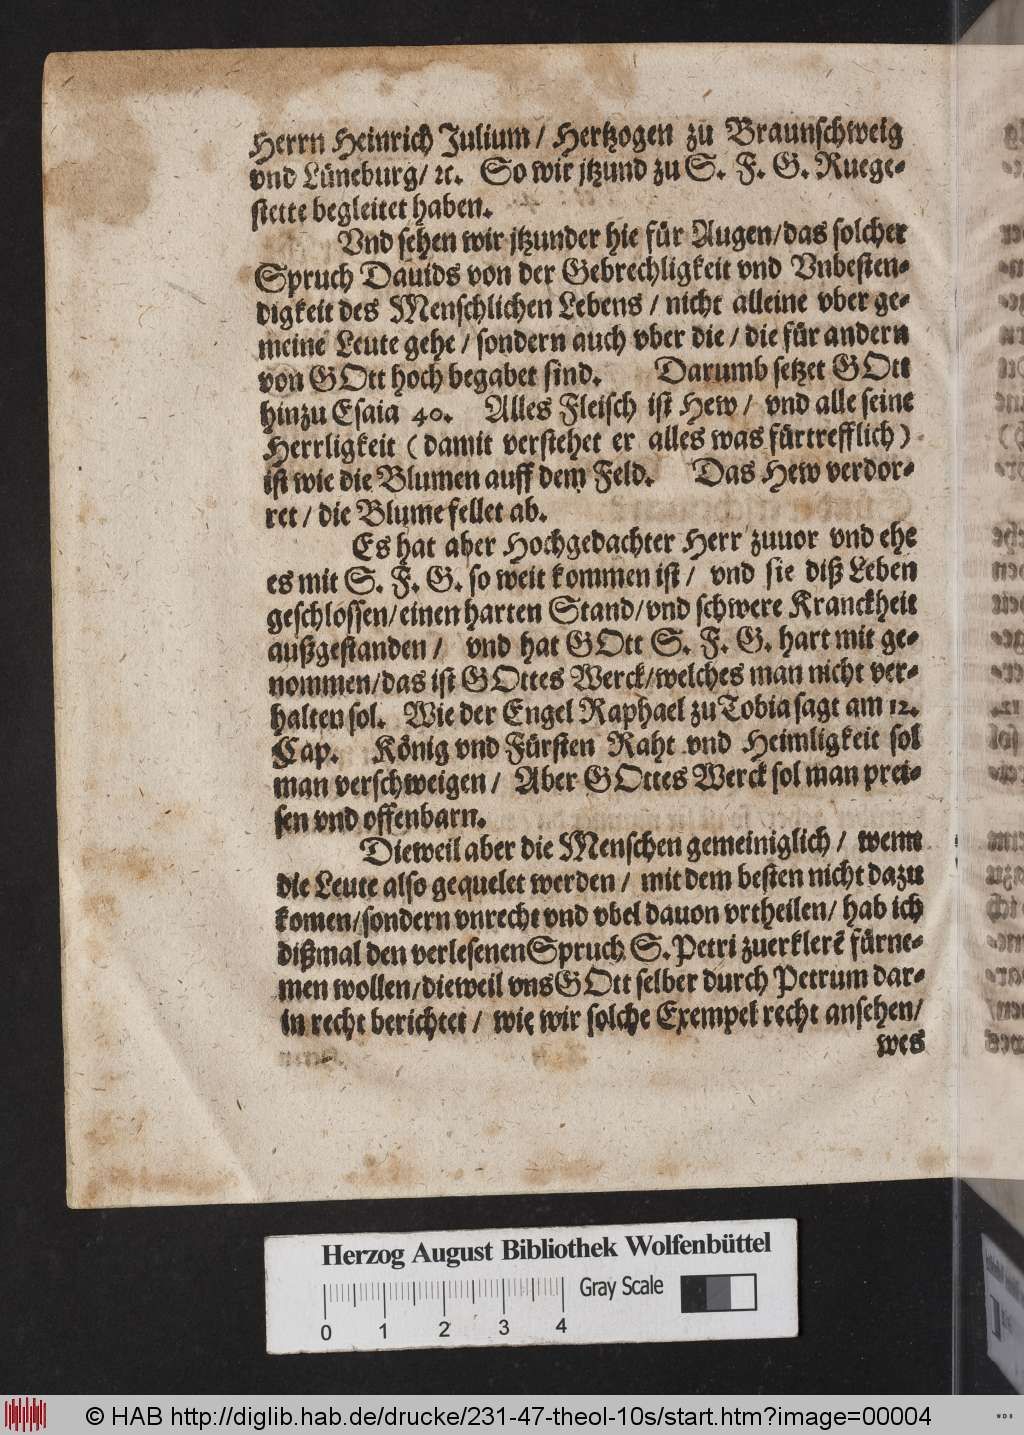 Herrn Heinrich Julium / Hertzogen zu Braunschweig
vnd Lüneburg / ꝛc. So wir jtzund zu S. F. G. Ruege-
stette begleitet haben.
Vnd sehen wir jtzunder hie für Augen / das solcher
Spruch Dauids von der Gebrechligkeit vnd Vnbesten-
digkeit des Menschlichen Lebens / nicht alleine vber ge-
meine Leute gehe / sondern auch vber die / die für andern
von GOtt hoch begabet sind. Darumb setzet GOtt
hinzu Esaia 40. Alles Fleisch ist Hew / vnd alle seine
Herrligkeit ( damit verstehet er alles was fürtrefflich )
ist wie die Blumen auff dem Feld. Das Hew verdor-
ret / die Blume fellet ab.
Es hat aber Hochgedachter Herr zuuor vnd ehe
es mit S. F. G. so weit kommen ist / vnd sie diß Leben
geschlossen / einen harten Stand / vnd schwere Kranckheit
außgestanden / vnd hat GOtt S. F. G. hart mit ge-
nommen / das ist GOttes Werck / welches man nicht ver-
halten sol. Wie der Engel Raphael zu Tobia sagt am 12.
Cap. König vnd Fürsten Raht vnd Heimligkeit sol
man verschweigen / Aber GOttes Werck sol man prei-
sen vnd offenbarn.
Dieweil aber die Menschen gemeiniglich / wenn
die Leute also gequelet werden / mit dem besten nicht dazu
komen / sondern vnrecht vnd vbel dauon vrtheilen / hab ich
dißmal den verlesenen Spruch S. Petri zuerklerẽ fürne-
men wollen / dieweil vns GOtt selber durch Petrum dar-
in recht berichtet / wie wir solche Exempel recht ansehen /
wes
Herzog August Bibliothek Wolfenbüttel
Gray Scale
0 1 2 3 4
© HAB http://diglib.hab.de/drucke/231-47-theol-10s/start.htm?image=00004